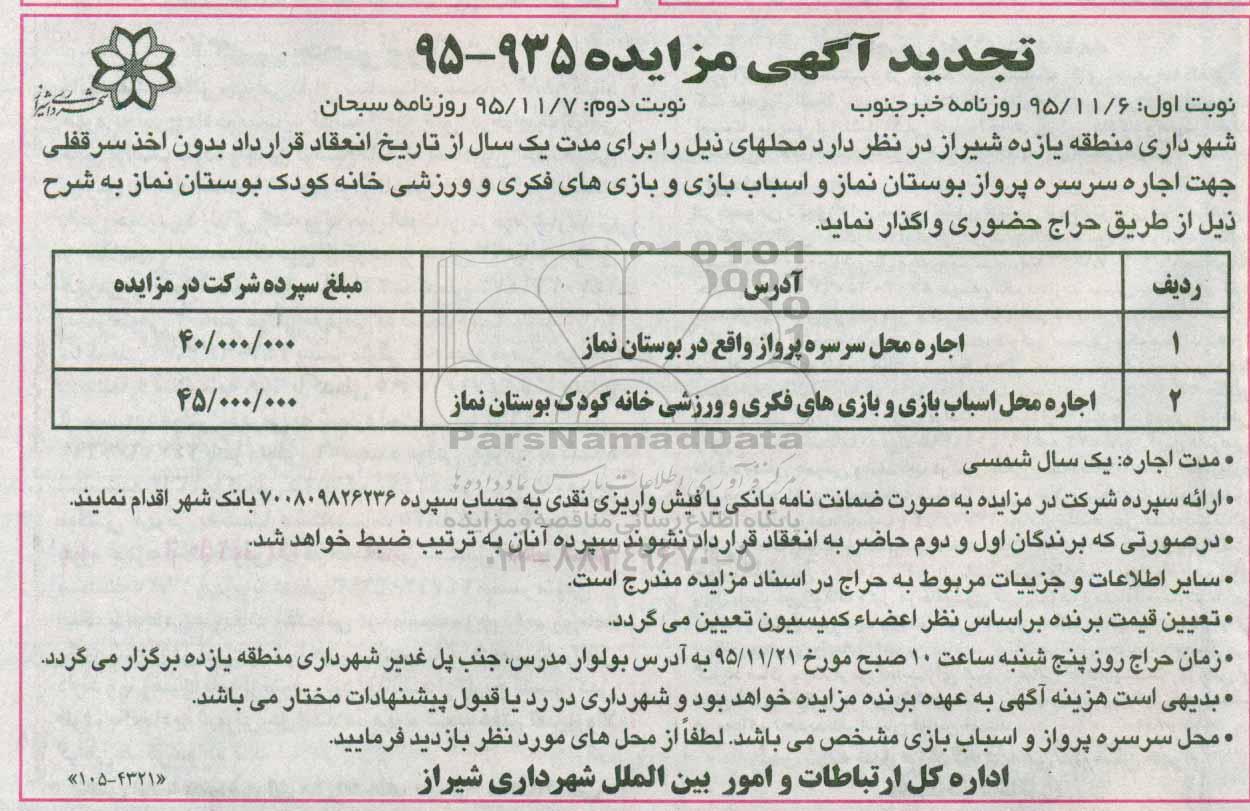 تجدید آگهی مزایده ۹۳۵-۹۵
شهرداری شیراز
نوبت اول: ۹۵/۱۱/۶ روزنامه خبرجنوب
نوبت دوم: ۹۵/۱۱/۷ روزنامه سبحان
شهرداری منطقه یازده شیراز در نظر دارد محلهای ذیل را برای مدت یک سال از تاریخ انعقاد قرارداد بدون اخذ سرقفلی
جهت اجاره سرسره پرواز بوستان نماز و اسباب بازی و بازی های فکری و ورزشی خانه کودک بوستان نماز به شرح
ذیل از طریق حراج حضوری واگذار نماید.
ردیف آدرس مبلغ سپرده شرکت در مزایده
۱ اجاره محل سرسره پرواز واقع در بوستان نماز ۴۰/۰۰۰/۰۰۰
۲ اجاره محل اسباب بازی و بازی های فکری و ورزشی خانه کودک بوستان نماز ۴۵/۰۰۰/۰۰۰
ParsNamadData
• مدت اجاره: یک سال شمسی
مرکز فرآوری اطلاعات پارس نماد داده ها
• ارائه سپرده شرکت در مزایده به صورت ضمانت نامه بانکی یا فیش واریزی نقدی به حساب سپرده ۷۰۰۸۰۹۸۲۶۲۳۶ بانک شهر اقدام نمایند.
پایگاه اطلاع رسانی مناقصه و مزایده
• درصورتی که برندگان اول و دوم حاضر به انعقاد قرارداد نشوند سپرده آنان به ترتیب ضبط خواهد شد.
۰۲۱-۸۸۳۴۹۶۷۰-۵
• سایر اطلاعات و جزییات مربوط به حراج در اسناد مزایده مندرج است.
• تعیین قیمت برنده براساس نظر اعضاء کمیسیون تعیین می گردد.
• زمان حراج روز پنج شنبه ساعت ۱۰ صبح مورخ ۹۵/۱۱/۲۱ به آدرس بولوار مدرس، جنب پل غدیر شهرداری منطقه یازده برگزار می گردد.
• بدیهی است هزینه آگهی به عهده برنده مزایده خواهد بود و شهرداری در رد یا قبول پیشنهادات مختار می باشد.
• محل سرسره پرواز و اسباب بازی مشخص می باشد. لطفاً از محل های مورد نظر بازدید فرمایید.
اداره کل ارتباطات و امور بین الملل شهرداری شیراز
«۱۰۵-۴۳۲۱»